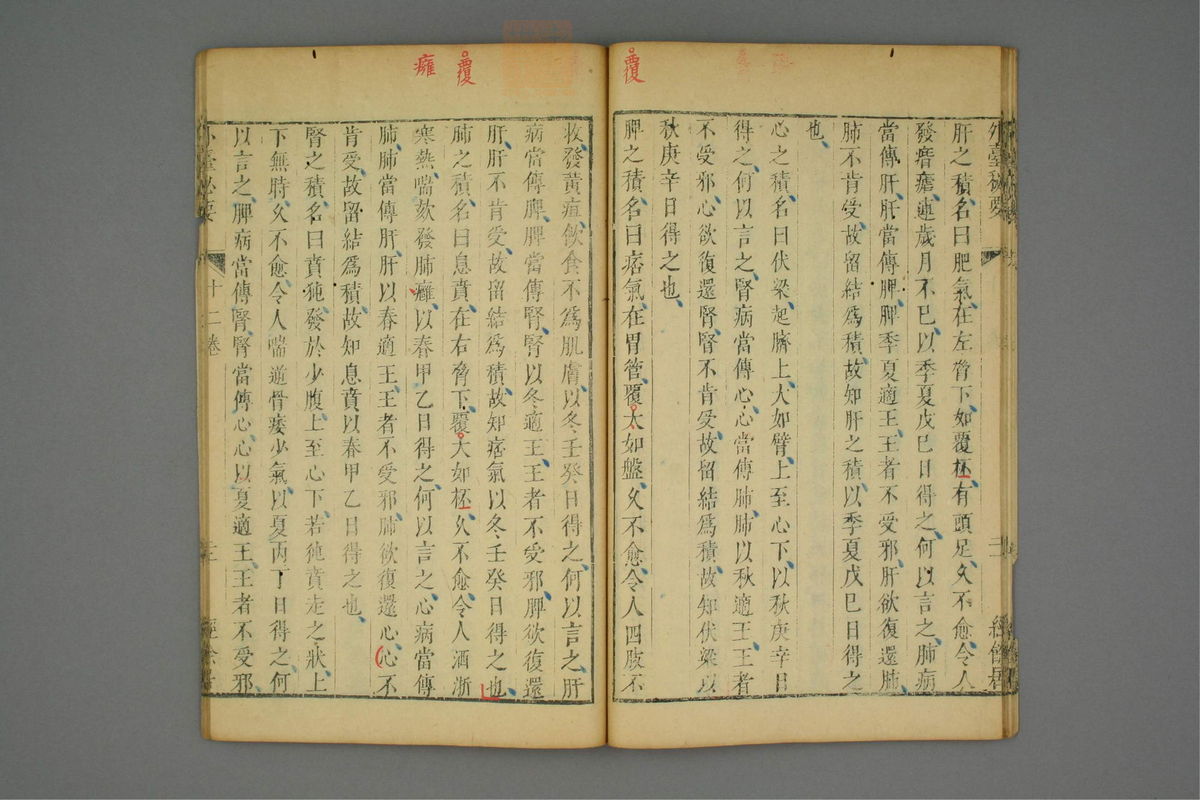 外臺秘要
三
經餘居
肝之積名曰肥氣在左脅下如覆杯有頭足久不愈令人
發瘖瘧連歲月不巳以季夏戊巳日得之何以言之肺病
當傳肝肝當傳脾脾季夏適王王者不受邪肝欲復還肺
肺不肯受故留結爲積故知肝之積以季夏戊巳日得之
也
心之積名曰伏梁起臍上大如臂上至心下以秋庚辛日
得之何以言之腎病當傳心心當傳肺肺以秋適王王者
不受邪心欲復還腎腎不肯受故留結爲積故知伏梁以
秋庚辛日得之也
覆
脾之積名曰痞氣在胃管覆大如盤久不愈令人四肢不
收發黃疸飲食不爲肌膚以冬壬癸日得之何以言之肝
病當傳脾脾當傳腎腎以冬適王王者不受邪脾欲復還
肝肝不肯受故留結爲積故知痞氣以冬壬癸日得之也
覆
肺之積名曰息賁在右脅下覆大如杯久不愈令人洒淅
癰
寒熱喘欬發肺癰以春甲乙日得之何以言之心病當傳
肺肺當傳肝肝以春適王王者不受邪肺欲復還心心不
肯受故留結爲積故知息賁以春甲乙日得之也
腎之積名曰賁㹠發於少腹上至心下若㹠賁走之狀上
下無時久不愈令人喘逆骨痿少氣以夏丙丁日得之何
以言之脾病當傳腎腎當傳心心以夏適王王者不受邪
外臺秘要
十二卷
三
經餘居